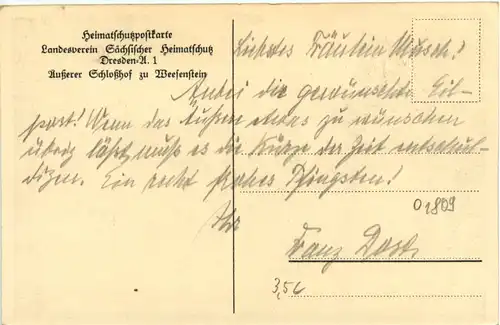 Heimatschutzpostkarte
Landesverein Sächsischer Heimatschutz
Dresden-A. 1
Äußerer Schloßhof zu Weesenstein
Liebstes Fräulein Musch!
Anbei die gewünschte Eil-
post! Wenn das Äußere etwas zu wünschen
übrig läßt, muß es die Kürze der Zeit entschul-
digen. Ein recht frohes Pfingsten!
Ihr
Franz Dost.
01809
3,56